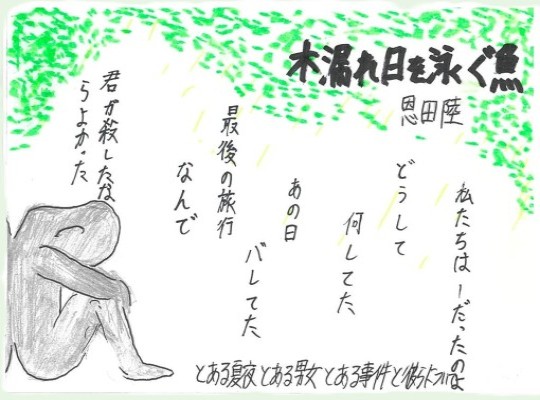 木漏れ日を泳ぐ魚
恩田陸
私たちは一だったのよ
どうして
何してた
あの日
バレてた
最後の旅行
なんで
君が殺したな
らよかった
とある夏夜とある男女とある事件と